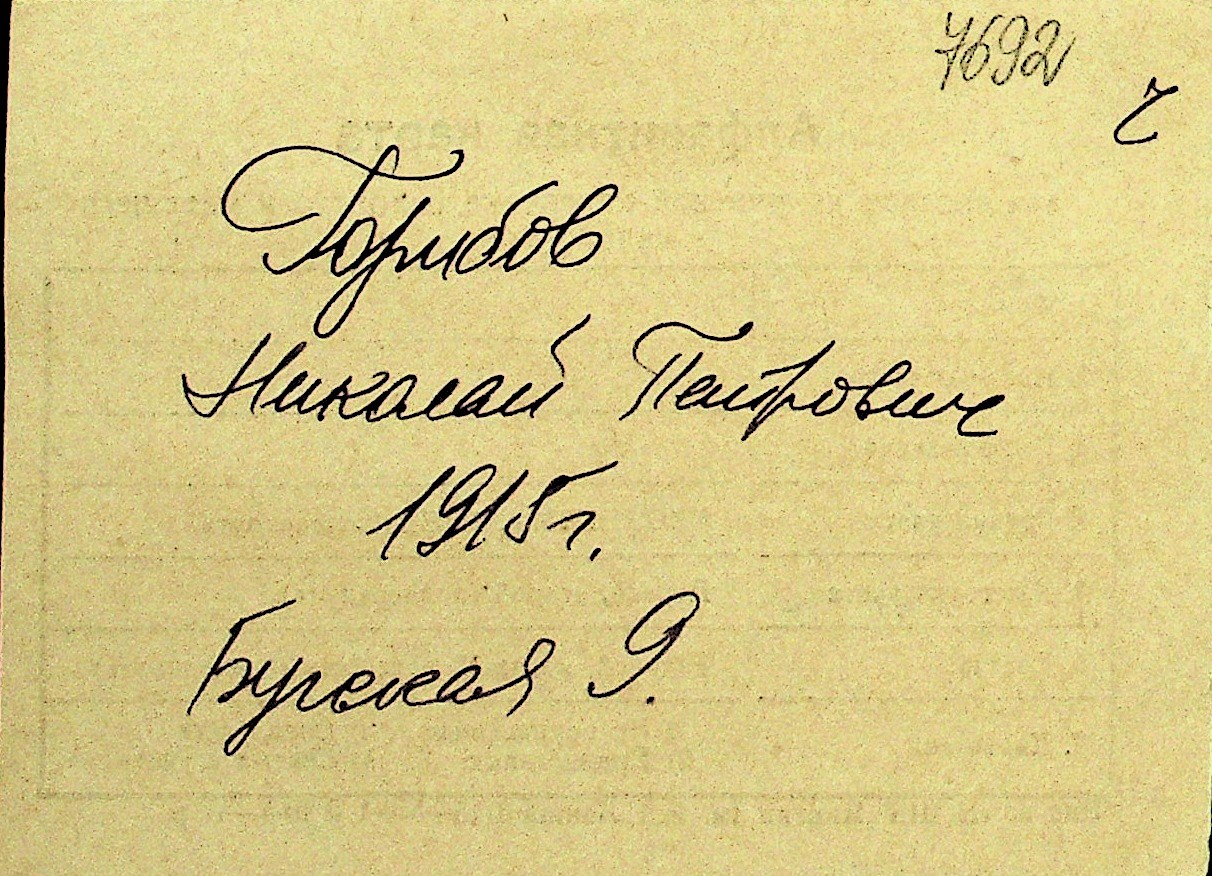 7692
ч
Горибов
Николай Петрович
1915 г.
Бугская 9.